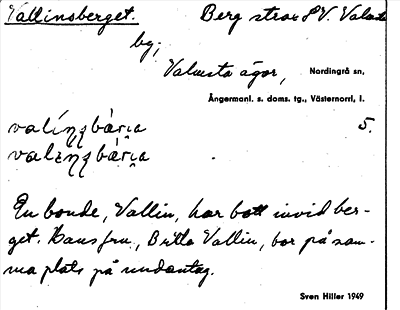 Vallinsberget. Berg strax SV. Valasta
by;
Valasta ägor, Nordingrå sn,
Ångermanl. s. doms. tg., Västernorrl. l.
5.
En bonde, Vallin, har bott invid ber-
get. Hans fru, Britta Vallin, bor på sam-
ma plats på undantag.
Sven Hiller 1949